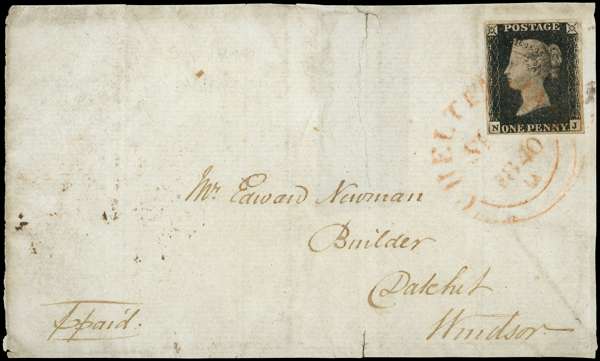 POSTAGE
N ONE PENNY J
Mr. Edward Newman
Builder
Datchet
Windsor
Ppaid.